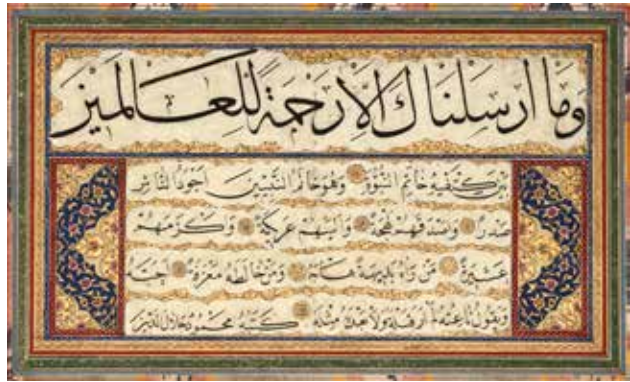 وَمَا اَرْسَلْنَاكَ اِلَّا رَحْمَةً لِلْعَالَمِيْنَ
بَيْنَ كَتِفَيْهِ خَاتَمُ النُّبُوَّةِ وَهُوَ خَاتَمُ النَّبِيِّيْنَ اَجْوَدُ النَّاسِ
صَدْرًا وَاَصْدَقُهُمْ لَهْجَةً وَاَلْيَنُهُمْ عَرِيْكَةً وَاَكْرَمُهُمْ
عَشِيْرَةً مَنْ رَاٰهُ بَدِيْهَةً هَابَهُ وَمَنْ خَالَطَهُ مَعْرِفَةً اَحَبَّهُ
وَيَقُوْلُ نَاعِتُهُ لَمْ اَرَ قَبْلَهُ وَلَا بَعْدَهُ مِثْلَهُ كَتَبَهُ مَحْمُوْد جَلَالُ الدِّيْنَ